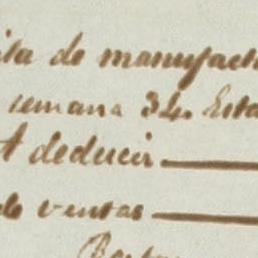 de manufact
semana 34. Esta
A deducir
de ventas